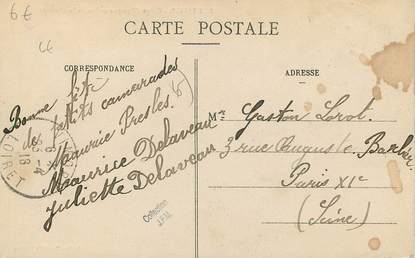 6€
CARTE POSTALE
CORRESPONDANCE
ADRESSE
Bonne fête
des petits camarades
Maurice Presles
Maurice Delaveau
Juliette Delaveau
Mr Gaston Lorot
3 rue Auguste Barbier
Paris XIe
(Seine)
LOIRET
Collection